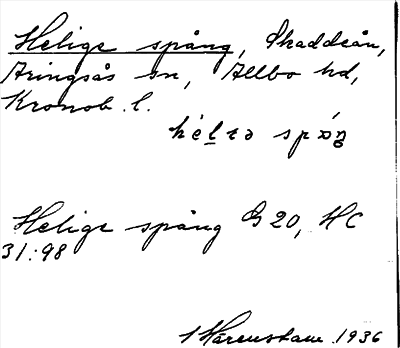 Helige spång, Skaddeån,
Aringsås sn, Allbo hd,
Kronob. l.
Helige spång G 20, HC
31:98
1936